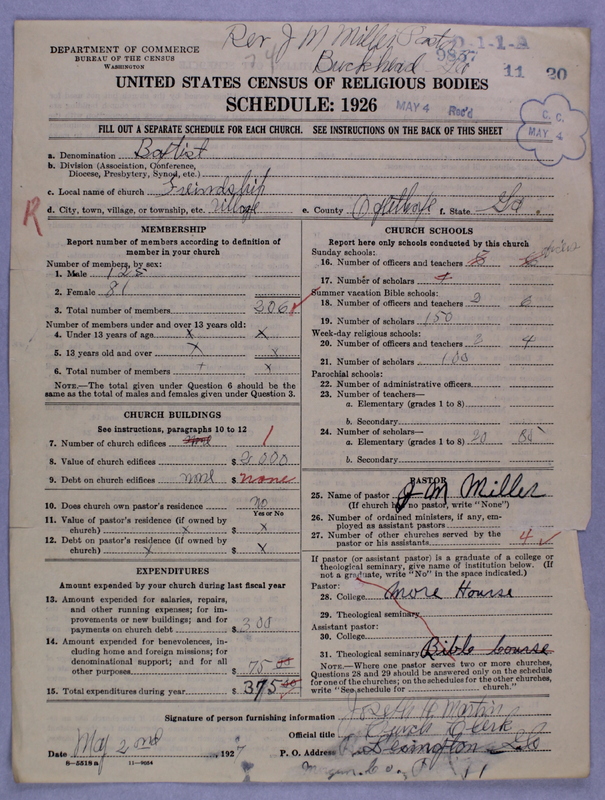 Rev J M Miller Pastor
Buckhead Ga
D-1-1-A
9837
11 20
DEPARTMENT OF COMMERCE
BUREAU OF THE CENSUS
WASHINGTON
UNITED STATES CENSUS OF RELIGIOUS BODIES
SCHEDULE: 1926
MAY 4 Rec'd
C. C.
MAY 4
FILL OUT A SEPARATE SCHEDULE FOR EACH CHURCH. SEE INSTRUCTIONS ON THE BACK OF THIS SHEET
a. Denomination Baptist
b. Division (Association, Conference,
Diocese, Presbytery, Synod, etc.)
c. Local name of church Friendship
R
d. City, town, village, or township, etc. village e. County Oglethorpe f. State Ga.
MEMBERSHIP
Report number of members according to definition of
member in your church
Number of members, by sex:
1. Male 125
2. Female 81
3. Total number of members 206
Number of members under and over 13 years old:
4. Under 13 years of age x x
5. 13 years old and over x x
6. Total number of members x x
NOTE.—The total given under Question 6 should be the
same as the total of males and females given under Question 3.
CHURCH BUILDINGS
See instructions, paragraphs 10 to 12
7. Number of church edifices 1
8. Value of church edifices $ 2000
9. Debt on church edifices none $ none
10. Does church own pastor's residence no
Yes or No
11. Value of pastor's residence (if owned by
church) x $ x
12. Debt on pastor's residence (if owned by
church) x $ x
EXPENDITURES
Amount expended by your church during last fiscal year
13. Amount expended for salaries, repairs,
and other running expenses; for im-
provements or new buildings; and for
payments on church debt $ 300
14. Amount expended for benevolences, in-
cluding home and foreign missions; for
denominational support; and for all
other purposes $ 75 00
15. Total expenditures during year $ 375 00
CHURCH SCHOOLS
Report here only schools conducted by this church
Sunday schools:
16. Number of officers and teachers
17. Number of scholars
Summer vacation Bible schools:
18. Number of officers and teachers 2 6
19. Number of scholars 150
Week-day religious schools:
20. Number of officers and teachers 2 4
21. Number of scholars 100
Parochial schools:
22. Number of administrative officers
23. Number of teachers—
a. Elementary (grades 1 to 8)
b. Secondary
24. Number of scholars—
a. Elementary (grades 1 to 8) 20 85
b. Secondary
PASTOR
25. Name of pastor J M Miller
(If church has no pastor, write "None")
26. Number of ordained ministers, if any, em-
ployed as assistant pastors
27. Number of other churches served by the
pastor or his assistants 4
If pastor (or assistant pastor) is a graduate of a college or
theological seminary, give name of institution below. (If
not a graduate, write "No" in the space indicated.)
Pastor:
28. College More House
29. Theological seminary
Assistant pastor:
30. College
31. Theological seminary Bible Course
NOTE.—Where one pastor serves two or more churches,
Questions 28 and 29 should be answered only on the schedule
for one of the churches; on the schedules for the other churches,
write "See schedule for church."
Signature of person furnishing information Joseph H. Martin
Official title Church Clerk
Date May 2nd, 1927 P. O. Address Lexington Ga
8—5518a 11—9054